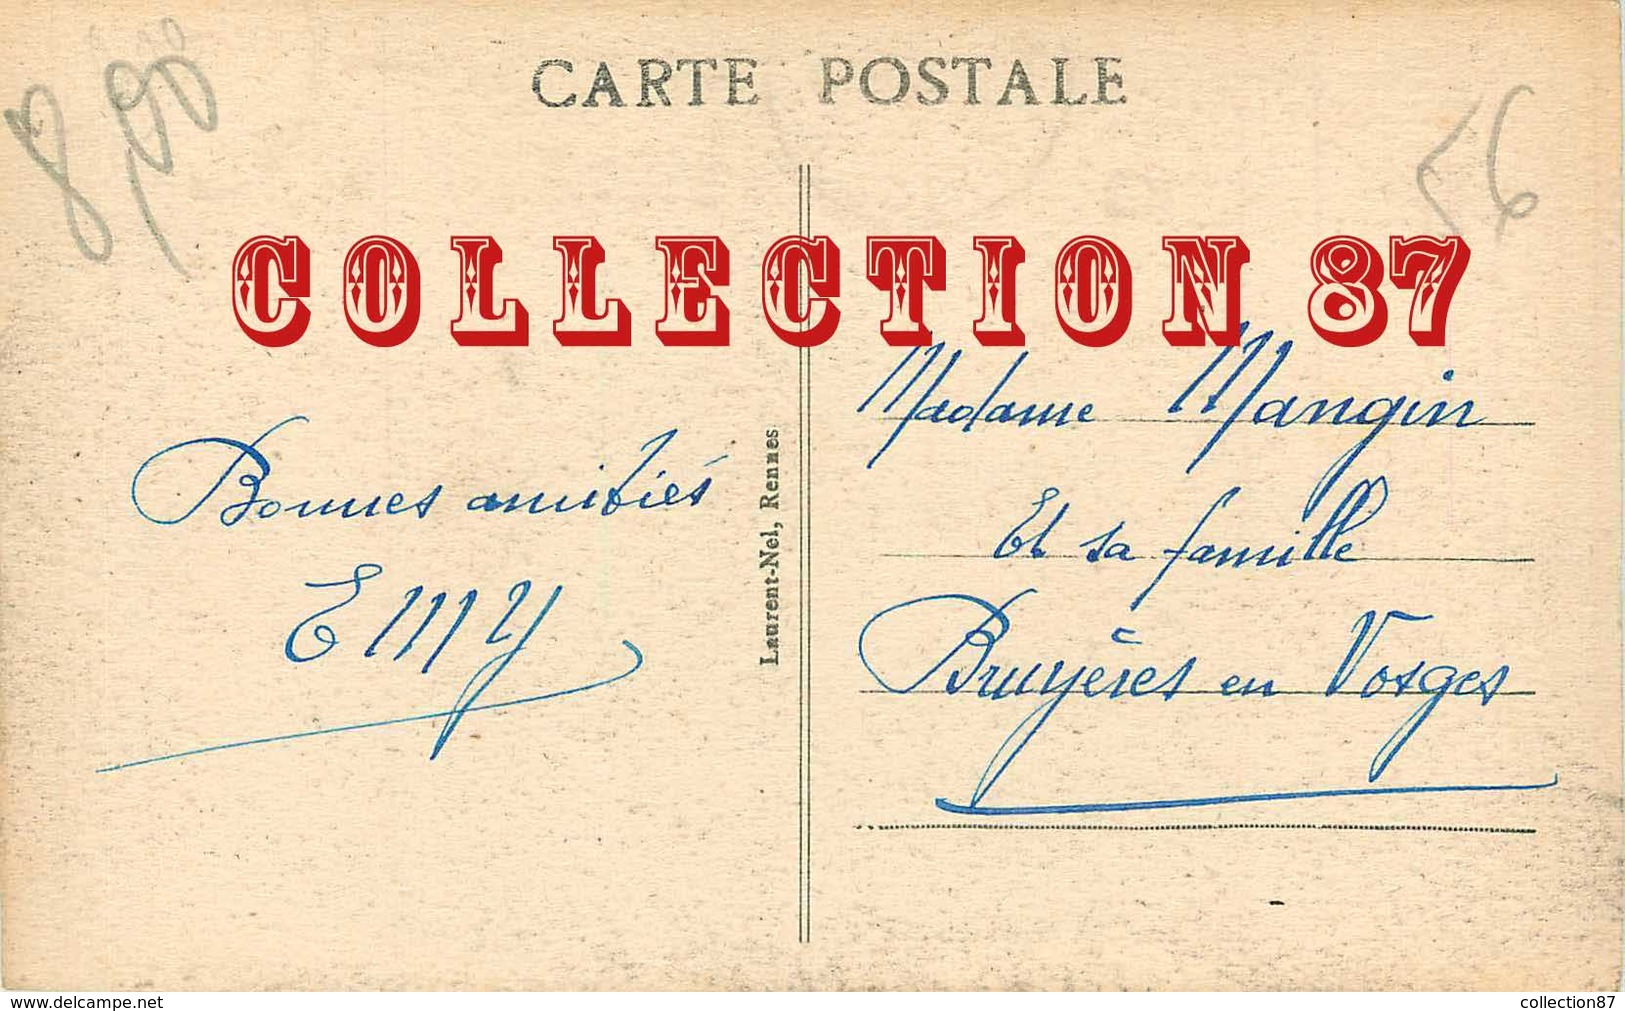 CARTE POSTALE
8,90
56
COLLECTION 87
Bonnes amitiés
EMY
Laurent-Nel, Rennes
Madame Mangin
Et sa famille
Bruyères en Vosges
www.delcampe.net
collection87